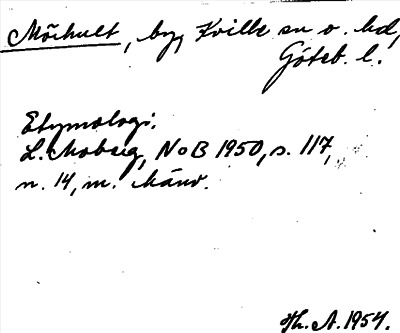 Mörhult, by, Kville sn o. hd,
Göteb. l.
Etymologi.
L. Moberg, NoB 1950, s. 117,
n. 14, m. hänv.
Th. A. 1954.